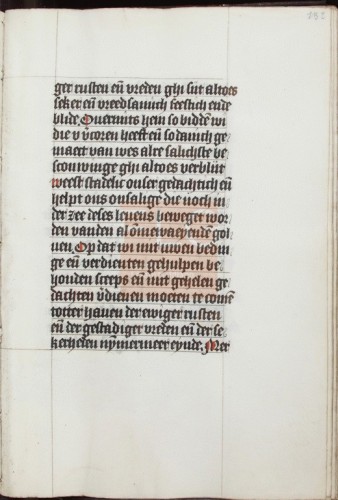 192
ger rusten eñ vreden ghi sijt altoes
seker eñ vreedsamich feestich ende
blide. Overmits hem so bidden wi
die v vercoren heeft eñ so danich ge
maect van wes alre salichste be
scouwinge ghi altoes verblijt
weest stadelic onser gedachtich eñ
helpt ons onsalige die noch in
der zee deses levens beweget wor
den vanden al om wayende gol
ven. Op dat wi mit uwen bedin
ge eñ verdienten gehulpen be
houden sceeps eñ mit gehelen ge
dachten v̄dienen moeten te comē
totter haven der ewiger rusten
eñ der gestadiger vreden eñ der se
kerheden nỹmermeer eynde. Mer